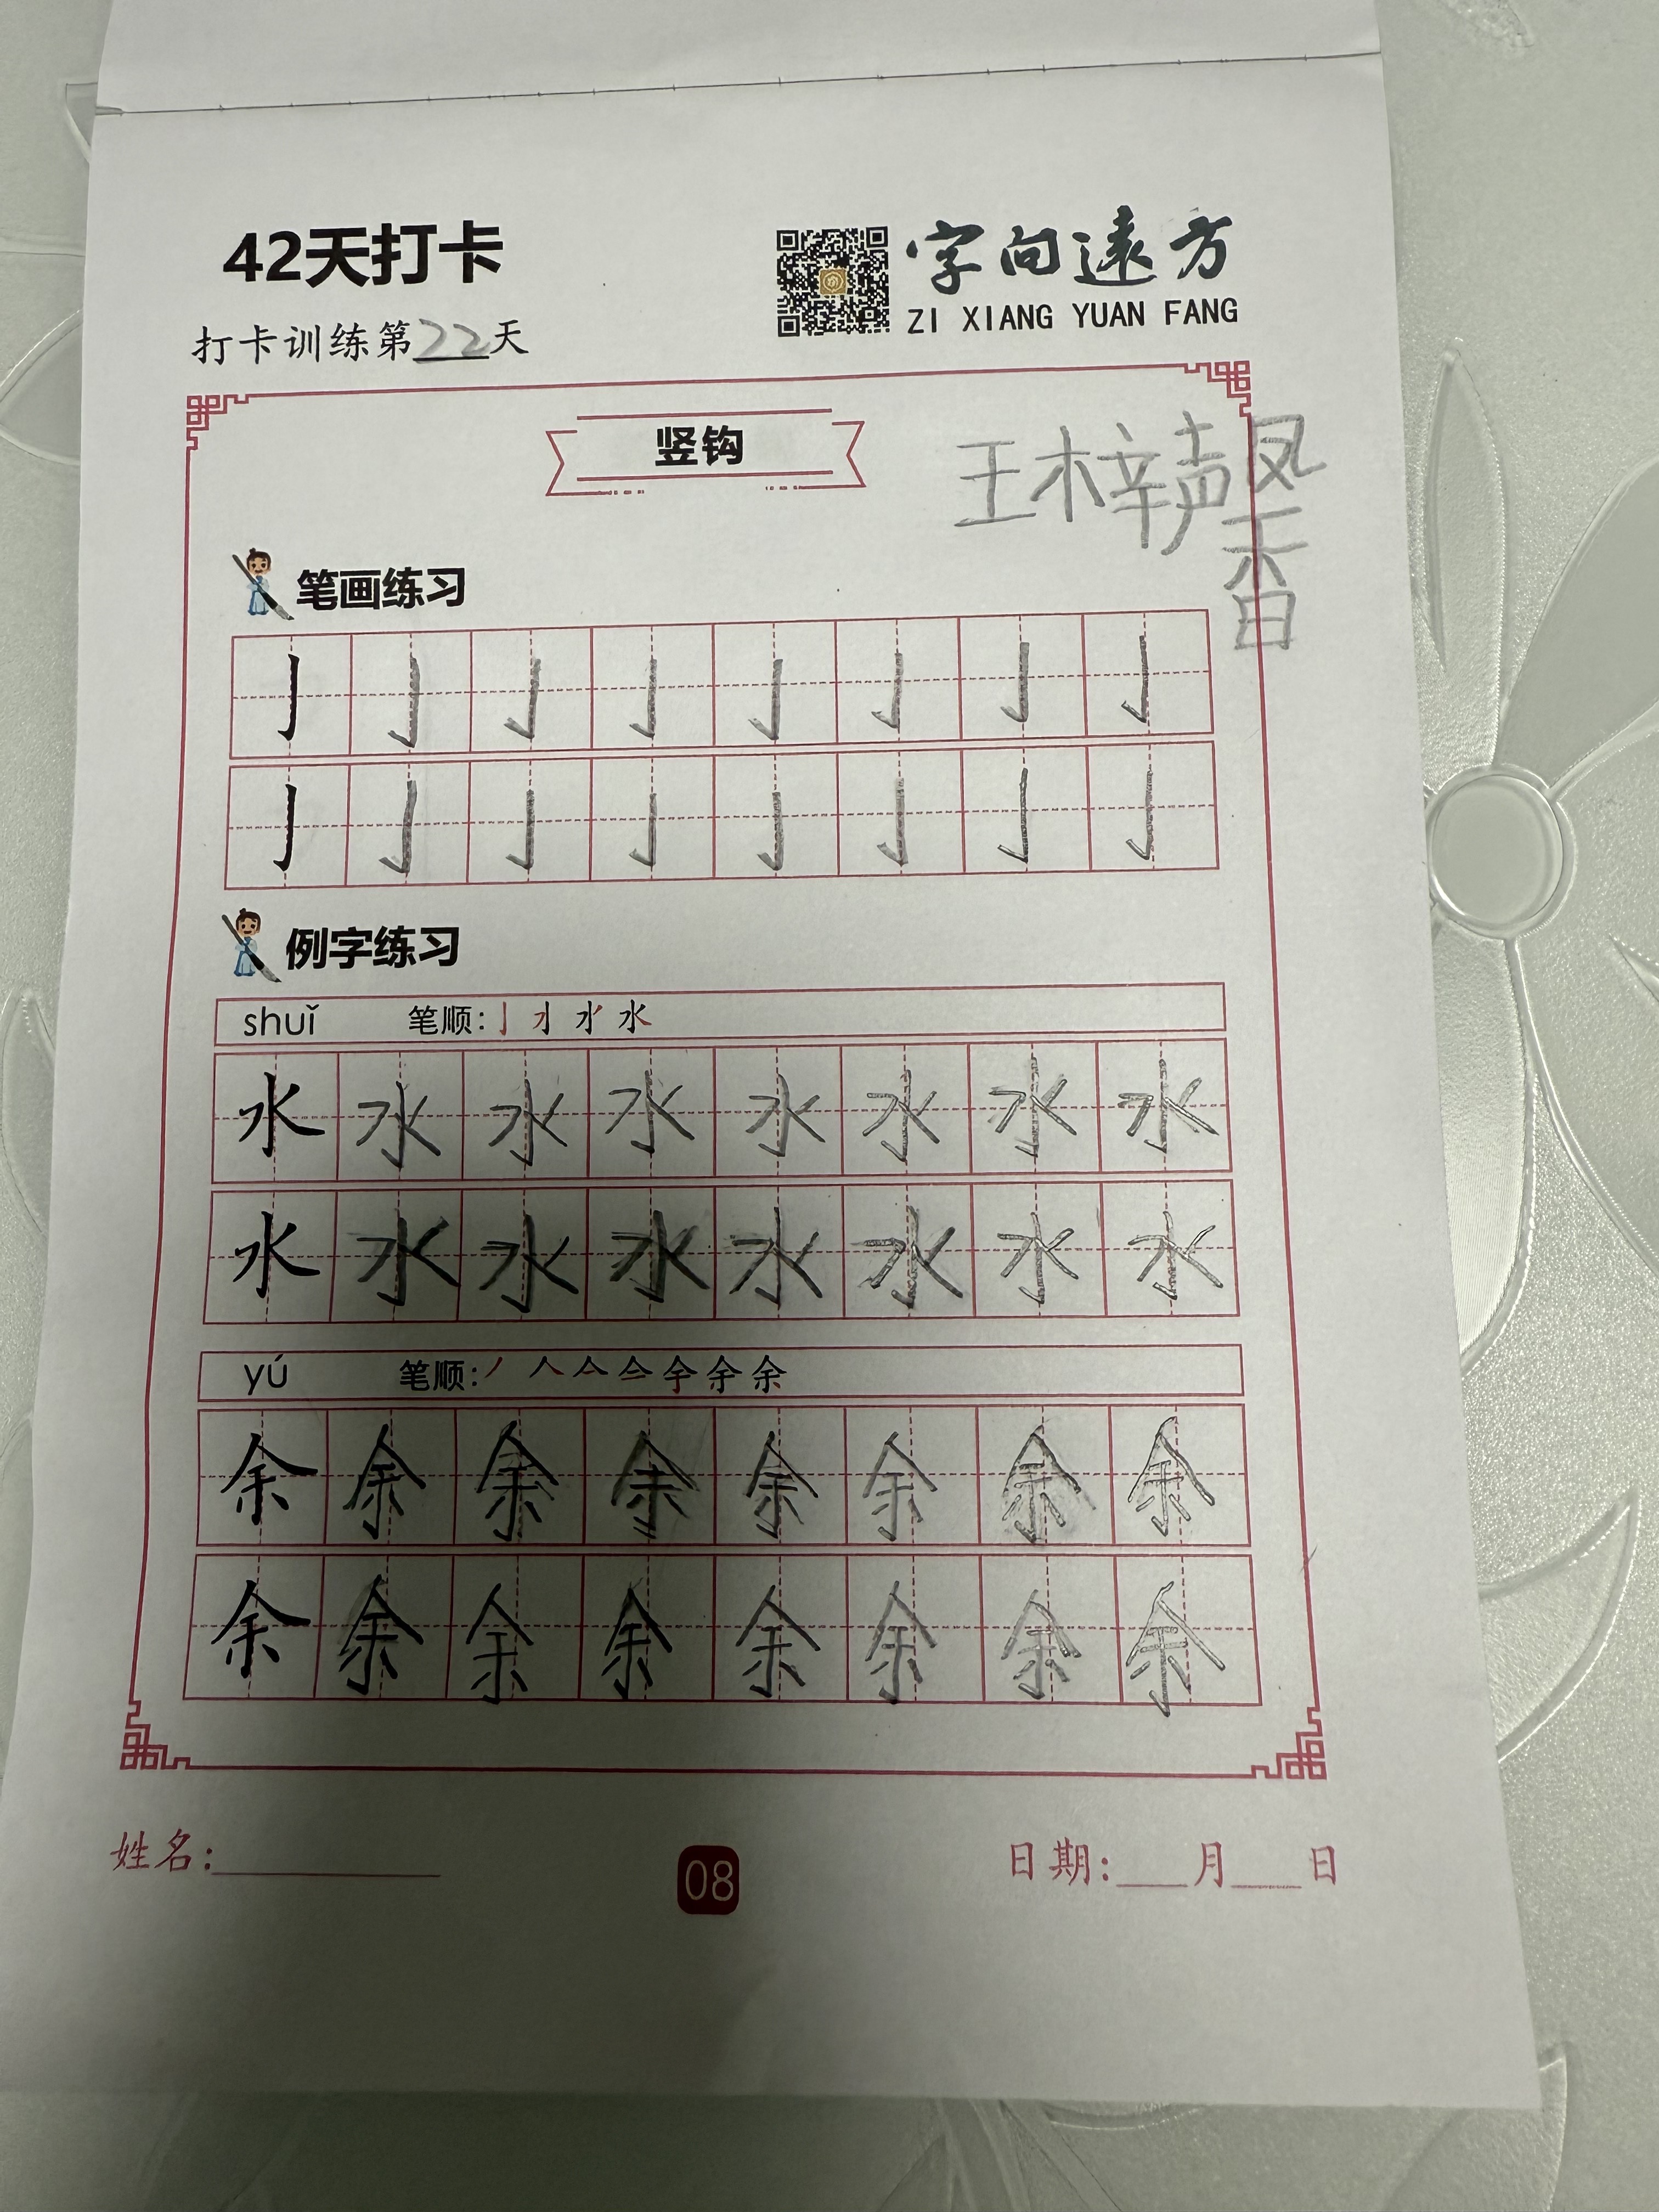 42天打卡
字向遠方
ZI XIANG YUAN FANG
打卡训练第22天
竖钩
王梓馨
笔画练习
例字练习
shuǐ 笔顺:亅 水
水 水 水 水 水 水 水 水
水 水 水 水 水 水 水 水
yú 笔顺:丿 人 亼 余
余 余 余 余 余 余 余 余
余 余 余 余 余 余 余 余
姓名:
08
日期: 月 日